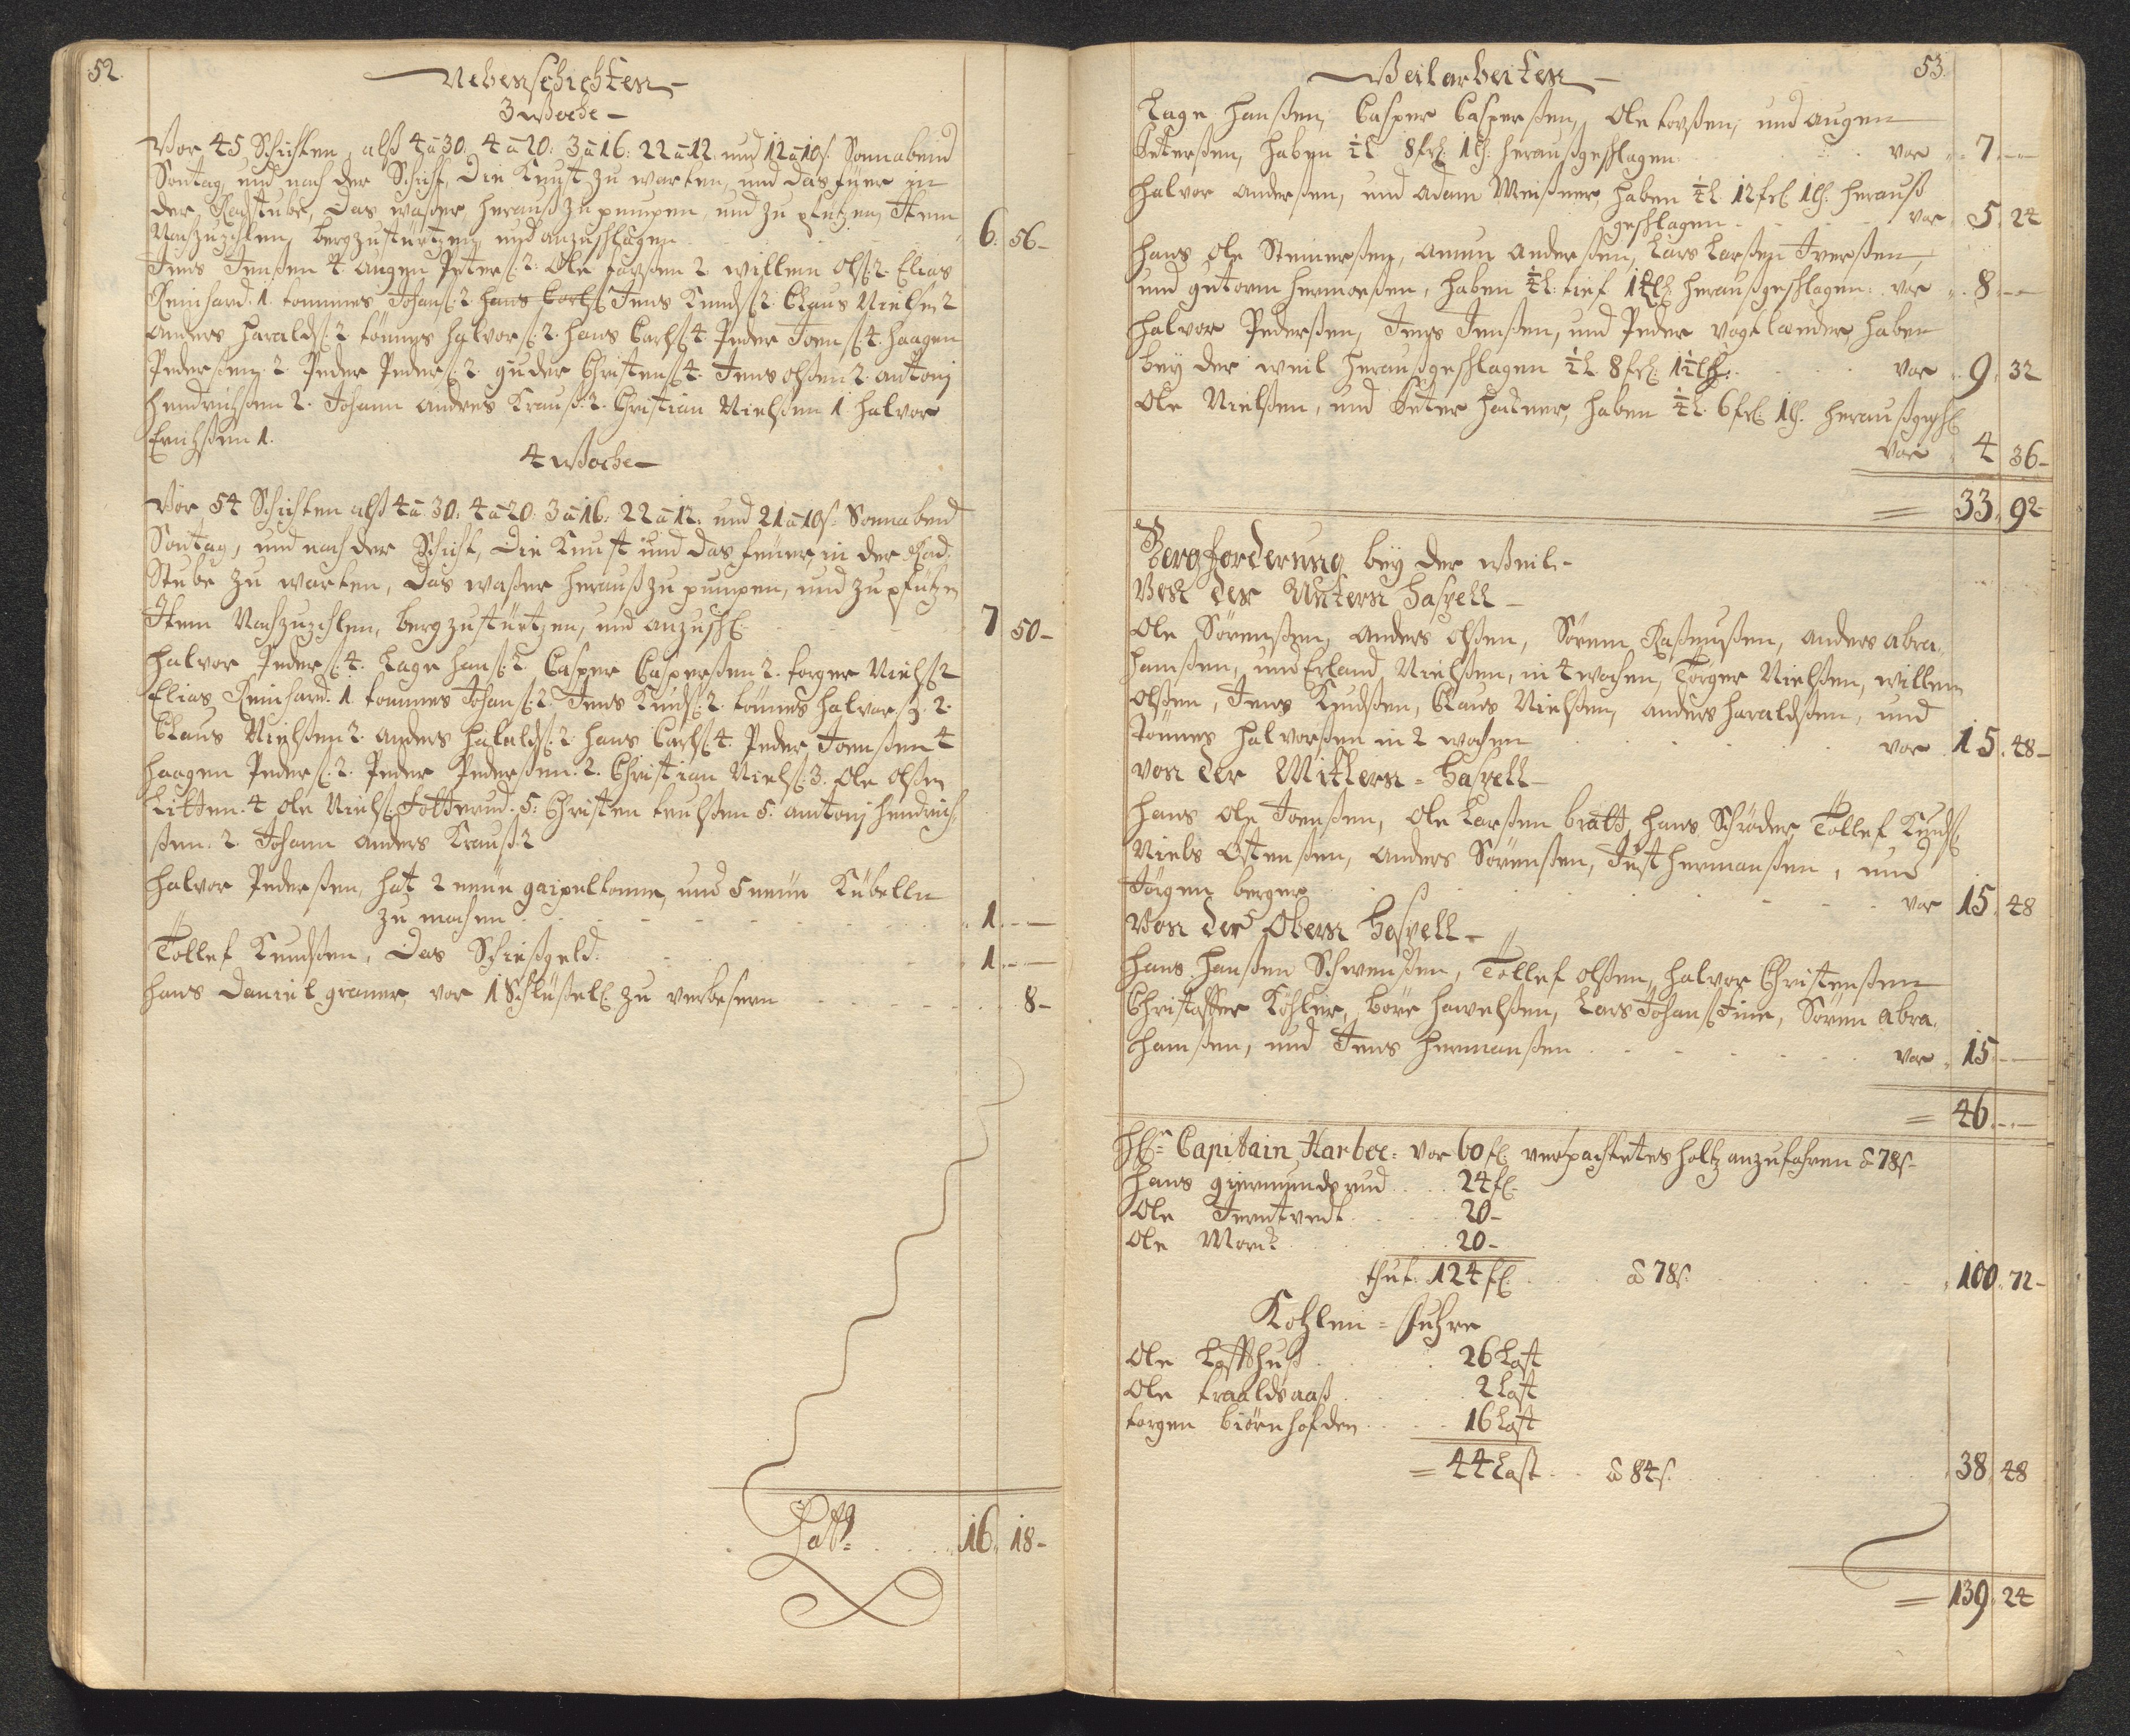 52.
Nebenschichten
3 Woche
Vor 45 Schichten, alß 4 a 30: 4 a 20: 3 a 16: 22 a 12. und 12 a 10 s. Sonnabend
Sontag, und nach der Schicht, Die Kunst zu warten, und das füer in
der Radstube, das waßer herauß zu pumpen, und zu pfützen, Item
Nachzuzehlen, berg zu stürtzen, und anzuschlagen 6. 56
Jens Jenßen 4. Augen Peters: 2. Ole torßen 2. willem Ols: 2. Elias
Reinhard. 1. tommes Johans: 2. hans Carls Jens Knuds: 2. Claus Nielsen 2
anders Haralds: 2 tönnes halvors: 2. hans Carls: 4. Peder Joens: 4. haagen
Pederßen. 2. Peder Peders: 2. guder Christens: 4. Jens olßen 2. antonj
Hendrichßen 2. Johann andres Krauß: 2. Christian Nielßen 1 halvor
Erichßen 1.
4 Woche
Vor 54 Schichten alß 4 a 30: 4 a 20. 3 a 16: 22 a 12. und 21 a 10 s. Sonnabend
Sontag, und nach der Schicht, die Kunst und das feuer, in der Rad:
Stube zu warten, das waßer herauß zu pumpen, und zu pfützen
Item Nachzuzehlen, berg zu stürtzen, und anzuschl: 7 50
halvor Peders: 4. Lage hans: 2. Casper Casperßen 2. torger Niels: 2
Elias Reinhard. 1. tommes Johans: 2. Jens Knuds: 2. tönnes halvors: 2.
Claus Nielßen 2. anders halalds: 2. hans Carls: 4. Peder Joenßen 4
haagen Peders: 2. Peder Pederßen: 2. Christian Niels: 3. Ole olßen
Litten. 4 ole Niels: Fotterud. 5: Christen 5. antonj Hendrich
ßen: 2. Johann anders Krauß: 2
halvor Pederßen, hat 2 neüe gaipeltonne, und 5 neüe Kübelln
zu machen 1
Töllef Knudßen, Das Schießgeld: 1
Hans Daniel graner, vor 1 Schlüßel: zu verbeßern 8
Latt: 16. 18
53.
Weilarbeiten
Lage Hanßen, Casper Casperßen, Ole torßen, und augen
Peterßen, haben ½ l 8 frl: 1 lß. heraußgeschlagen vor 7.
Halvor anderßen, und adam Meißner, haben ¼ l. 12 frl 1 lß. herauß
geschlagen vor 5 24
Hans Ole Steinerßen, amun anderßen, Lars Larßen Iverßen,
und gutorm hermoeßen, haben ½ l: tief 1 lß heraußgeschlagen: vor 8
Halvor Pederßen, Jens Jenßen, und Peder vogelaender haben
bey der weil heraußgeschlagen ½ l. 8 frl: 1½ lß: vor 9. 32
Ole Nielßen, und Peter Hatner, haben ¼ l. 6 frl: 1 lß. heraußgeschl
vor 4 36
= 33. 92
Bergforderung bey der Weil
Von der Untern Haspell
Ole Sörenßen, anders olßen, Sören Raßmußen, anders abra,
hamßen, und Erland Nielßen, in 4 wochen, Törger Nielßen, willem
olßen, Jens Knudßen, Claus Nielßen, anders haraldßen, und
tönnes halvorßen in 2 wochen vor 15. 48
von der Mittlern = Haspell
Hans Ole Joenßen, Ole Larßen bratt, hans Schröder, Töllef Knuds
Niels Ostenßen, anders Sörenßen, Just hermanßen, und
Jörgen berger vor 15. 48
Von der Obern Haspell
Hans Hanßen Schwenßen, Töllef olßen, halvor Christenßen
Christoffer Köhler, böre hawelßen, Lars Johans Tine, Sören abra,
hamßen, und Jens Hermanßen vor 15
= 46.
Hr: Capitain Harboe: vor 60 fl: verpachtetes holtz anzufahren a 78 s
Hans giermundsrud 24 fl
Ole Jerntvedt 20
Ole Moen 20
thut: 124 fl: a 78 s. 100. 72
Kohlen = fuhre
Ole Loffthuß 26 Last
Ole traaldsaaß 2 Last
torgen biörnhofden 16 Last
= 44 Last a 84 s. 38. 48
= 139. 24